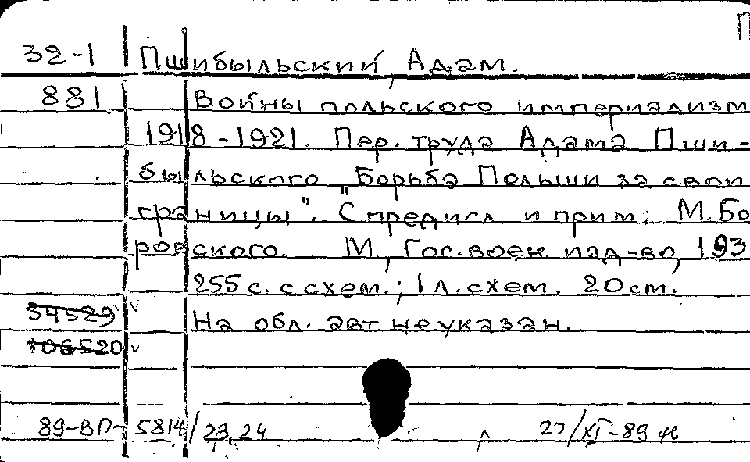 П
32-1 Пшибыльский, Адам.
881 Войны польского империализм
1918-1921. Пер. труда Адама Пши-
быльского "Борьба Польши за свои
границы". "С предисл и прим; М. Бо
ровского. М., Гос. воен. изд-во, 193
255 с. с схем.; 1 л. схем. 20 см.
54529 На обл. авт не указан.
106520
89-ВП-5814/23,24 27/XI-89